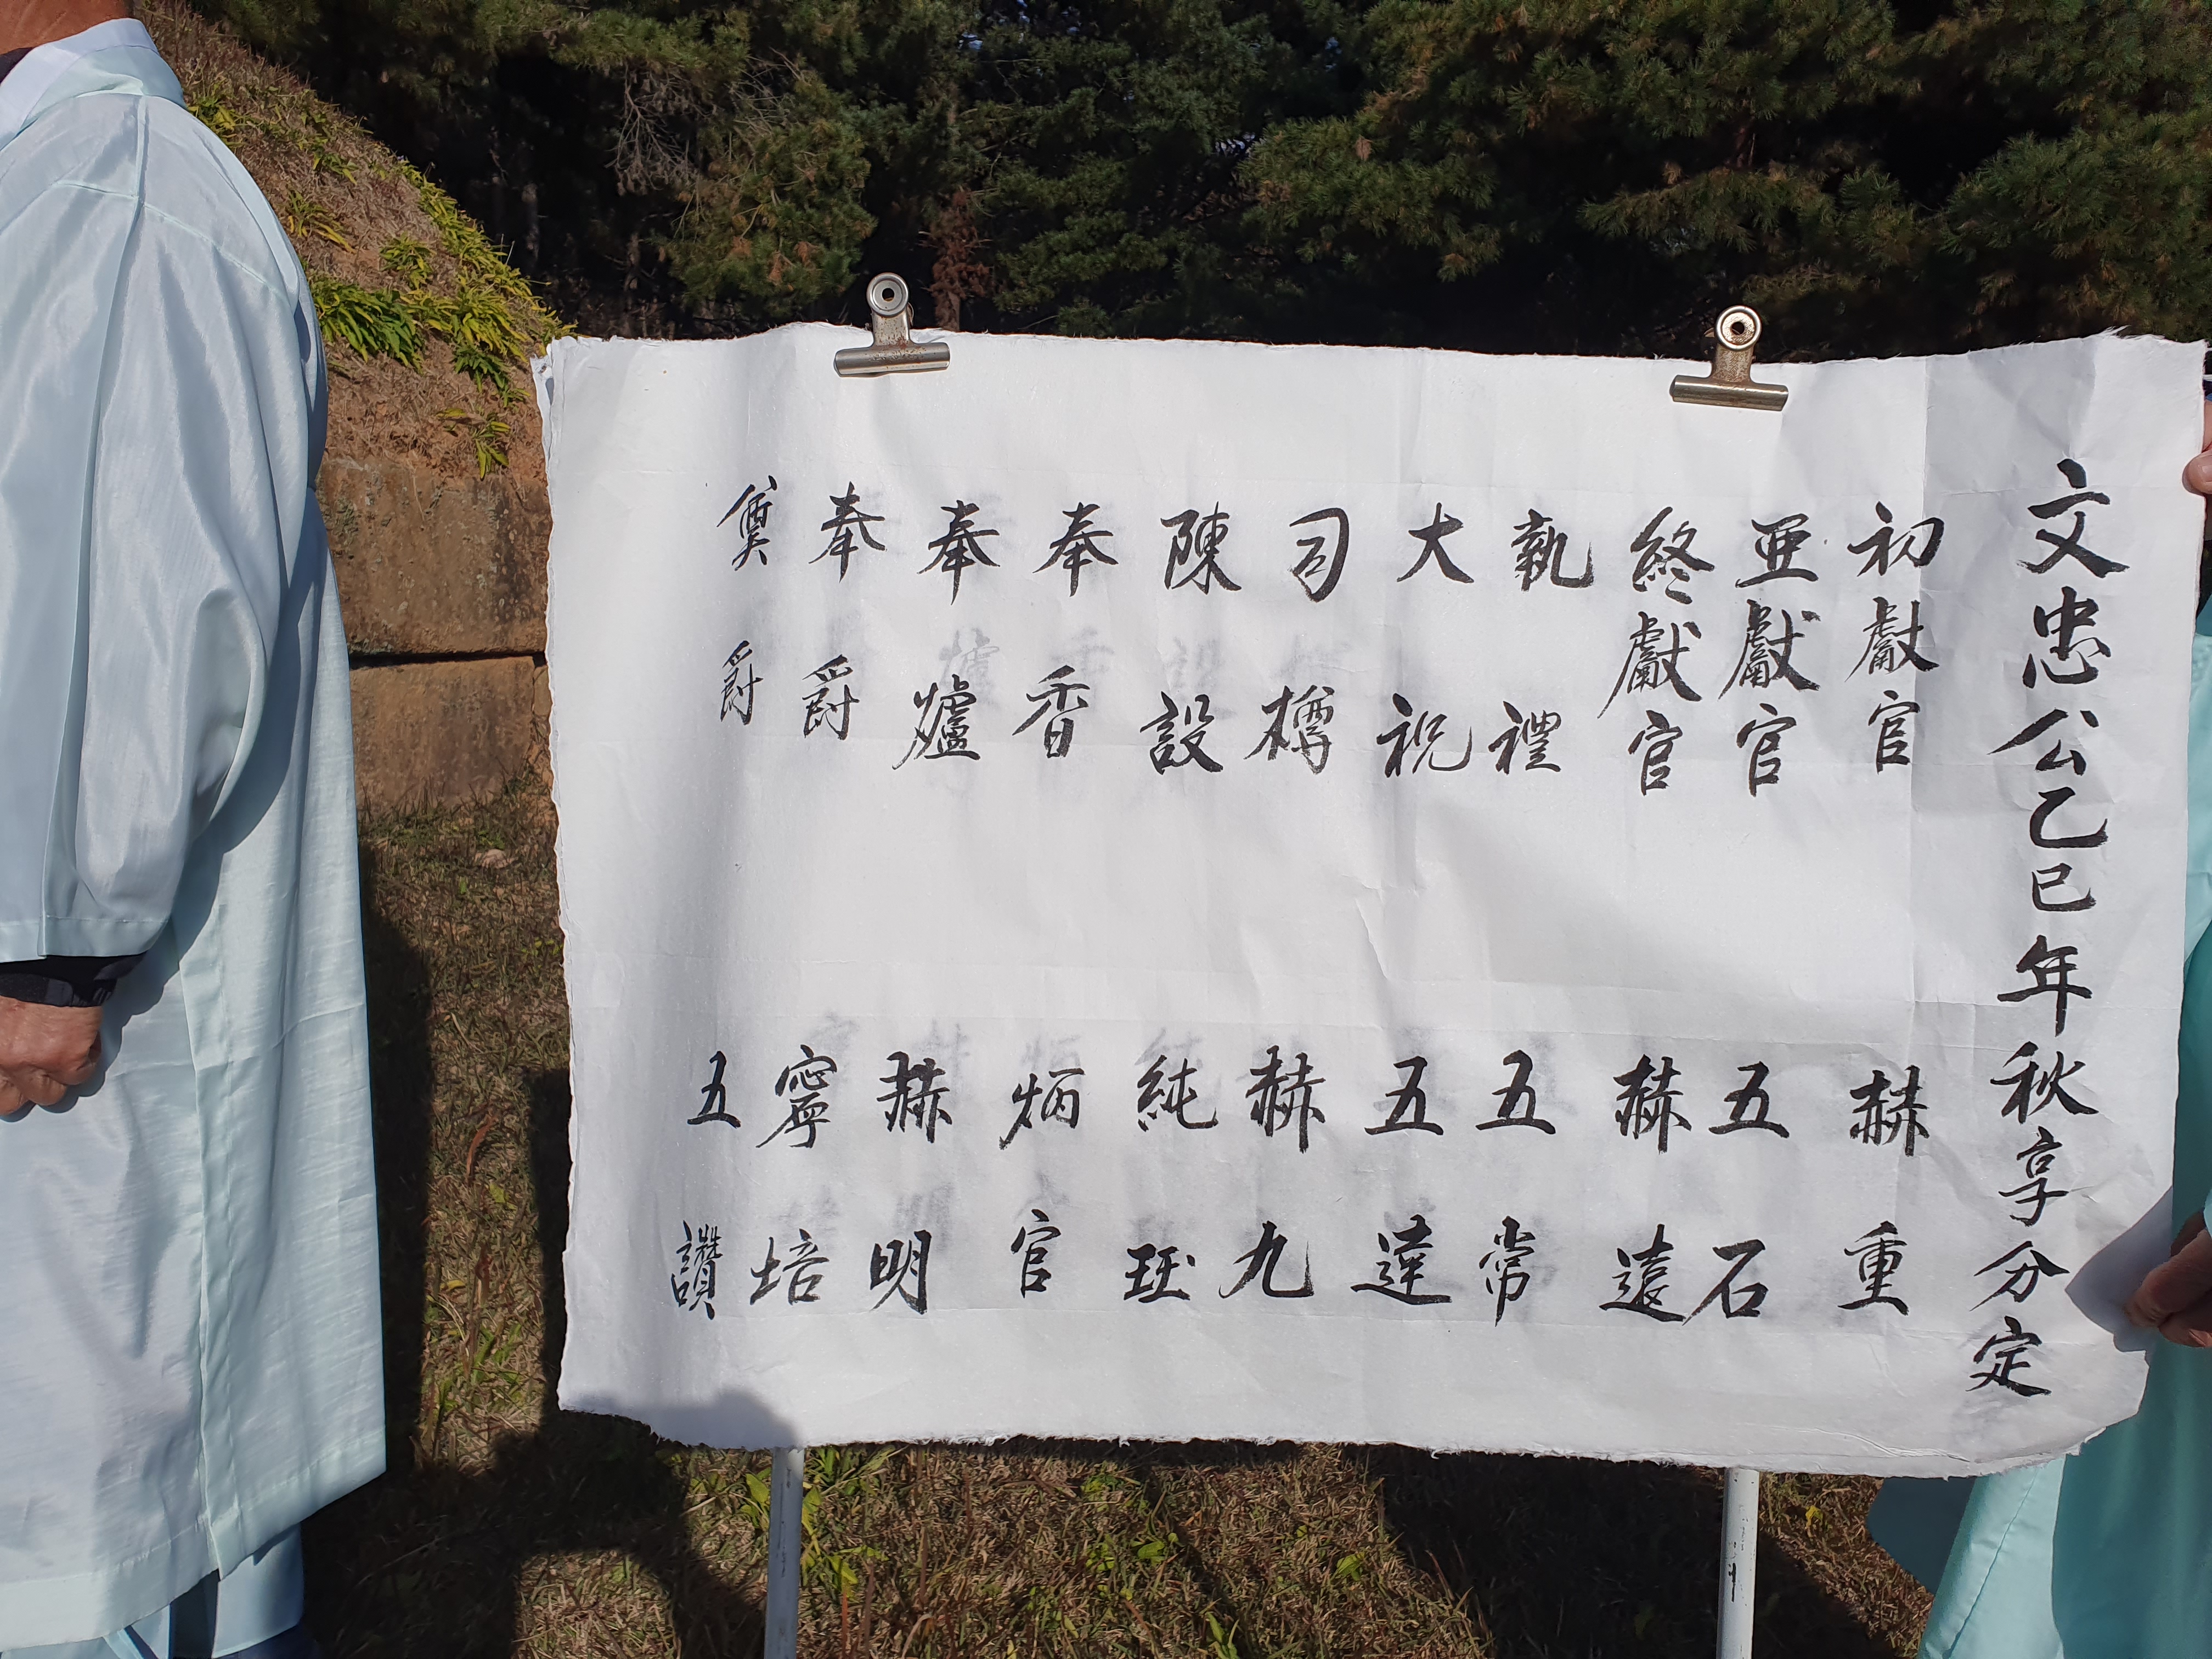 文忠公乙巳年秋享分定
初獻官 赫重
亜獻官 五石
終獻官 赫遠
執禮 五常
大祝 五達
司樽 赫九
陳設 純珏
奉香 炳官
奉爐 赫明
奉爵 寧培
奠爵 五讚